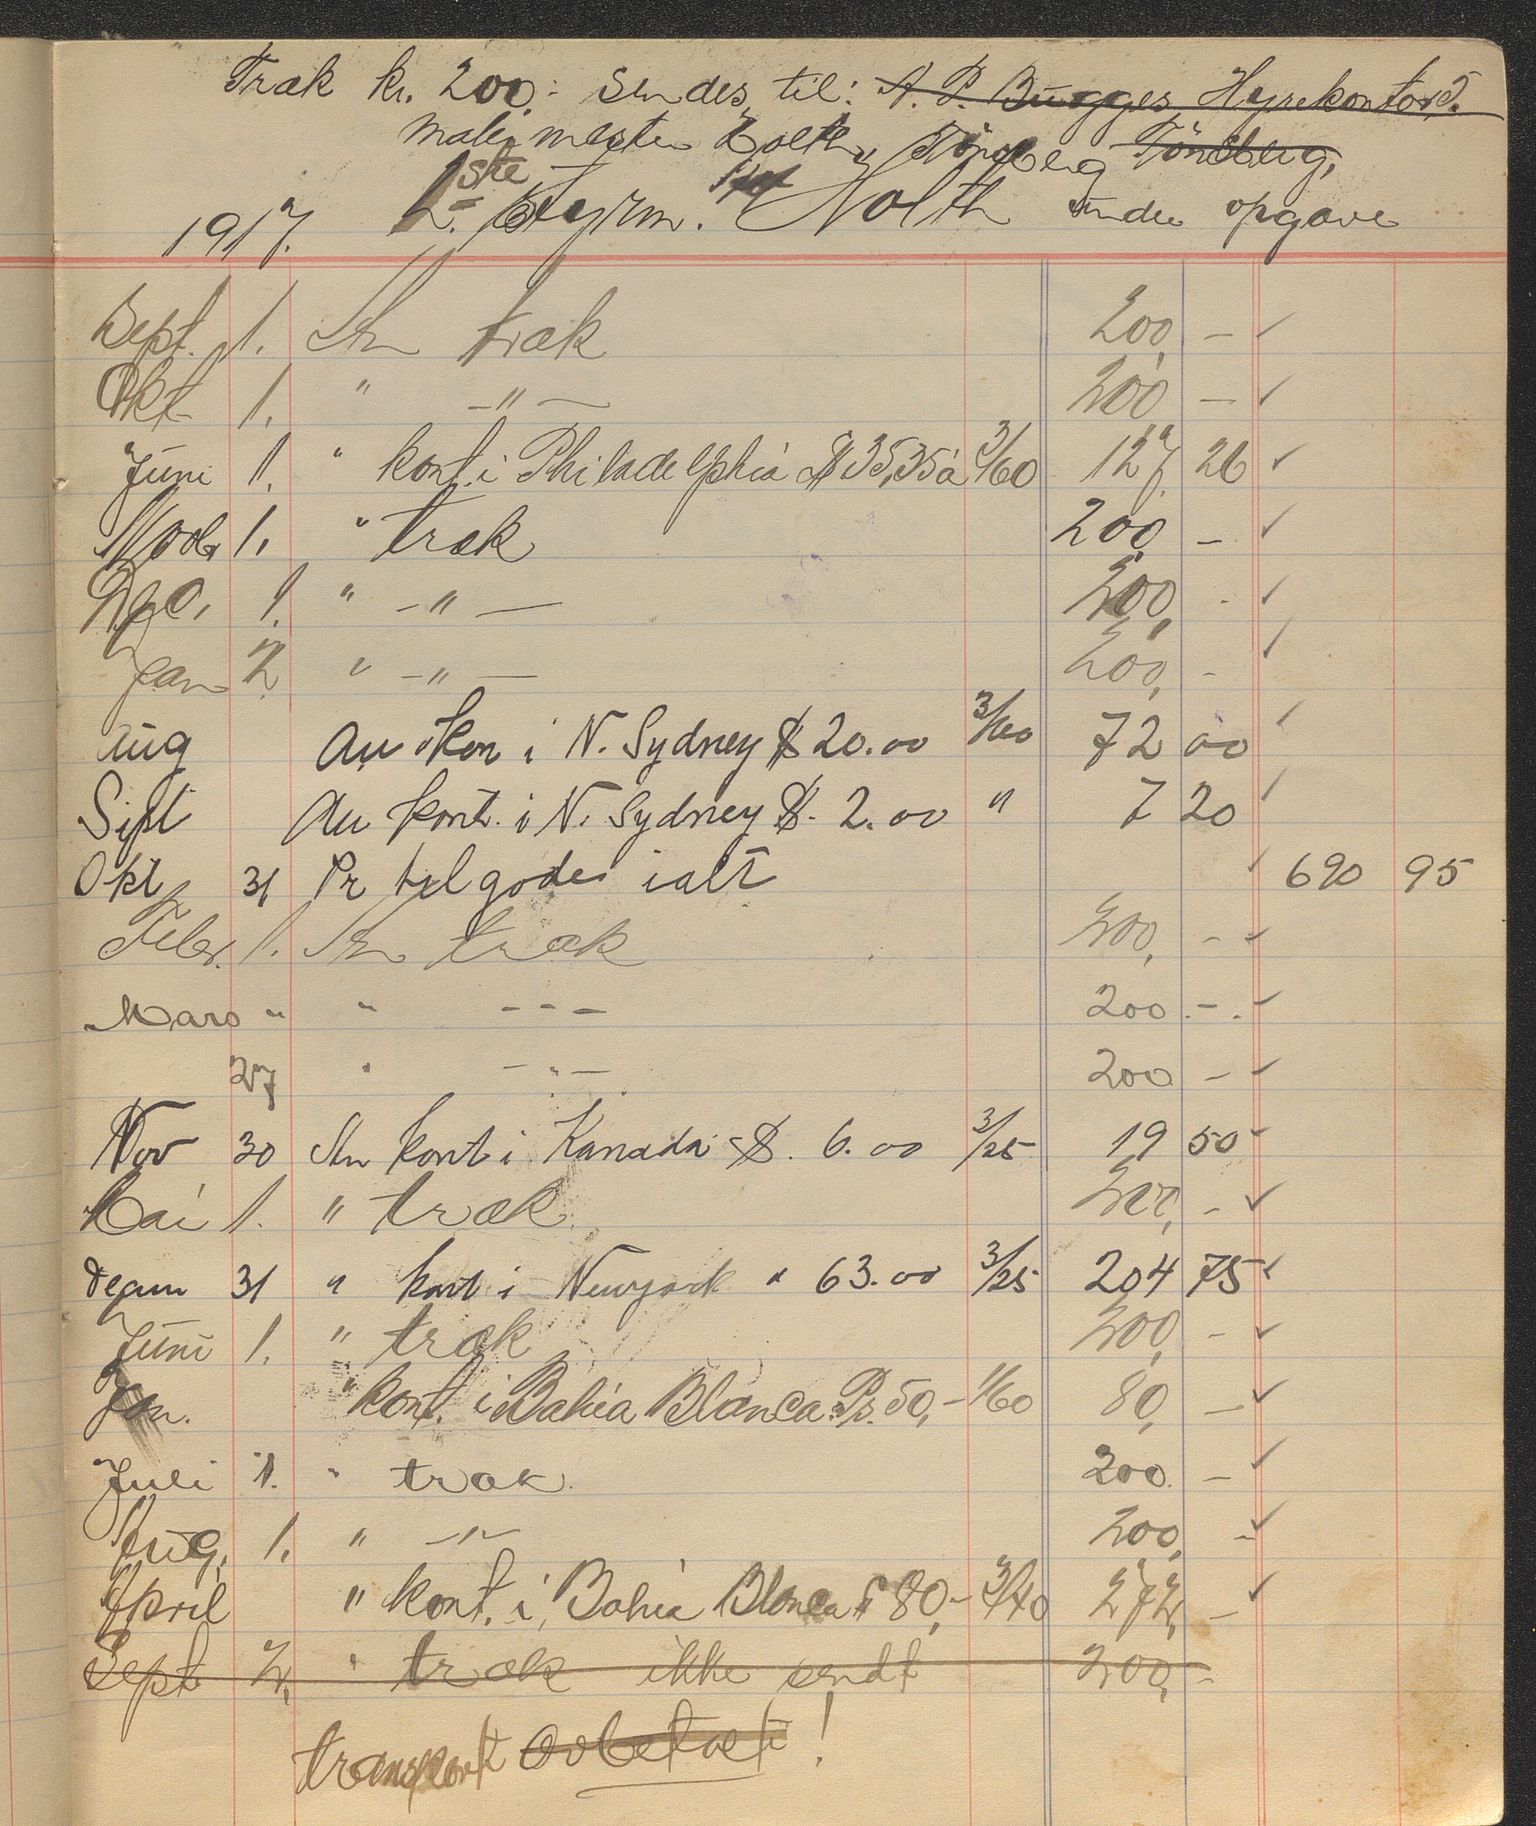 Træk kr. 200,- sendes til: A. P. Bugges Hyrekontor,
malermester Holth, Tönsberg Tönsberg,
1ste
1917. 2. Styrm. Holth under opgave
Sept. 1. An træk 200, —
Okt 1. " — " — 200 —
Juni 1. " kont. i Philadelphia $ 35,35 à 3/60 127, 26
Novbr 1. " træk 200, —
Dec. 1. " — " — 200, -
Jan 2. " — " — 200, -
Aug An kon i N. Sydney $ 20.00 3/60 72 00
Sept An kont. i N. Sydney $. 2.00 " 7 20
Okt 31 Pr tilgode ialt 690 95
Febr. 1. An træk 200, -
Mars " " - - - 200. -.
27 " - " - 200 -
Nov 30 An kont i Kanada $. 6.00 3/25 19 50
Mai 1. " træk 200, -
31 " kont i Newyork " 63.00 3/25 204 75
Juni 1. " træk 200, -
Jan. " kont. i Bahia Blanca Ps. 50,- 1/60 80, —
Juli 1. " træk 200. —
Aug. 1. " — " — 200, -
April " kont. i Bahia Blanca $ 80,- 3/40 272, —
Sept 2. " træk ikke sendt 200, -
transport avbetalt!